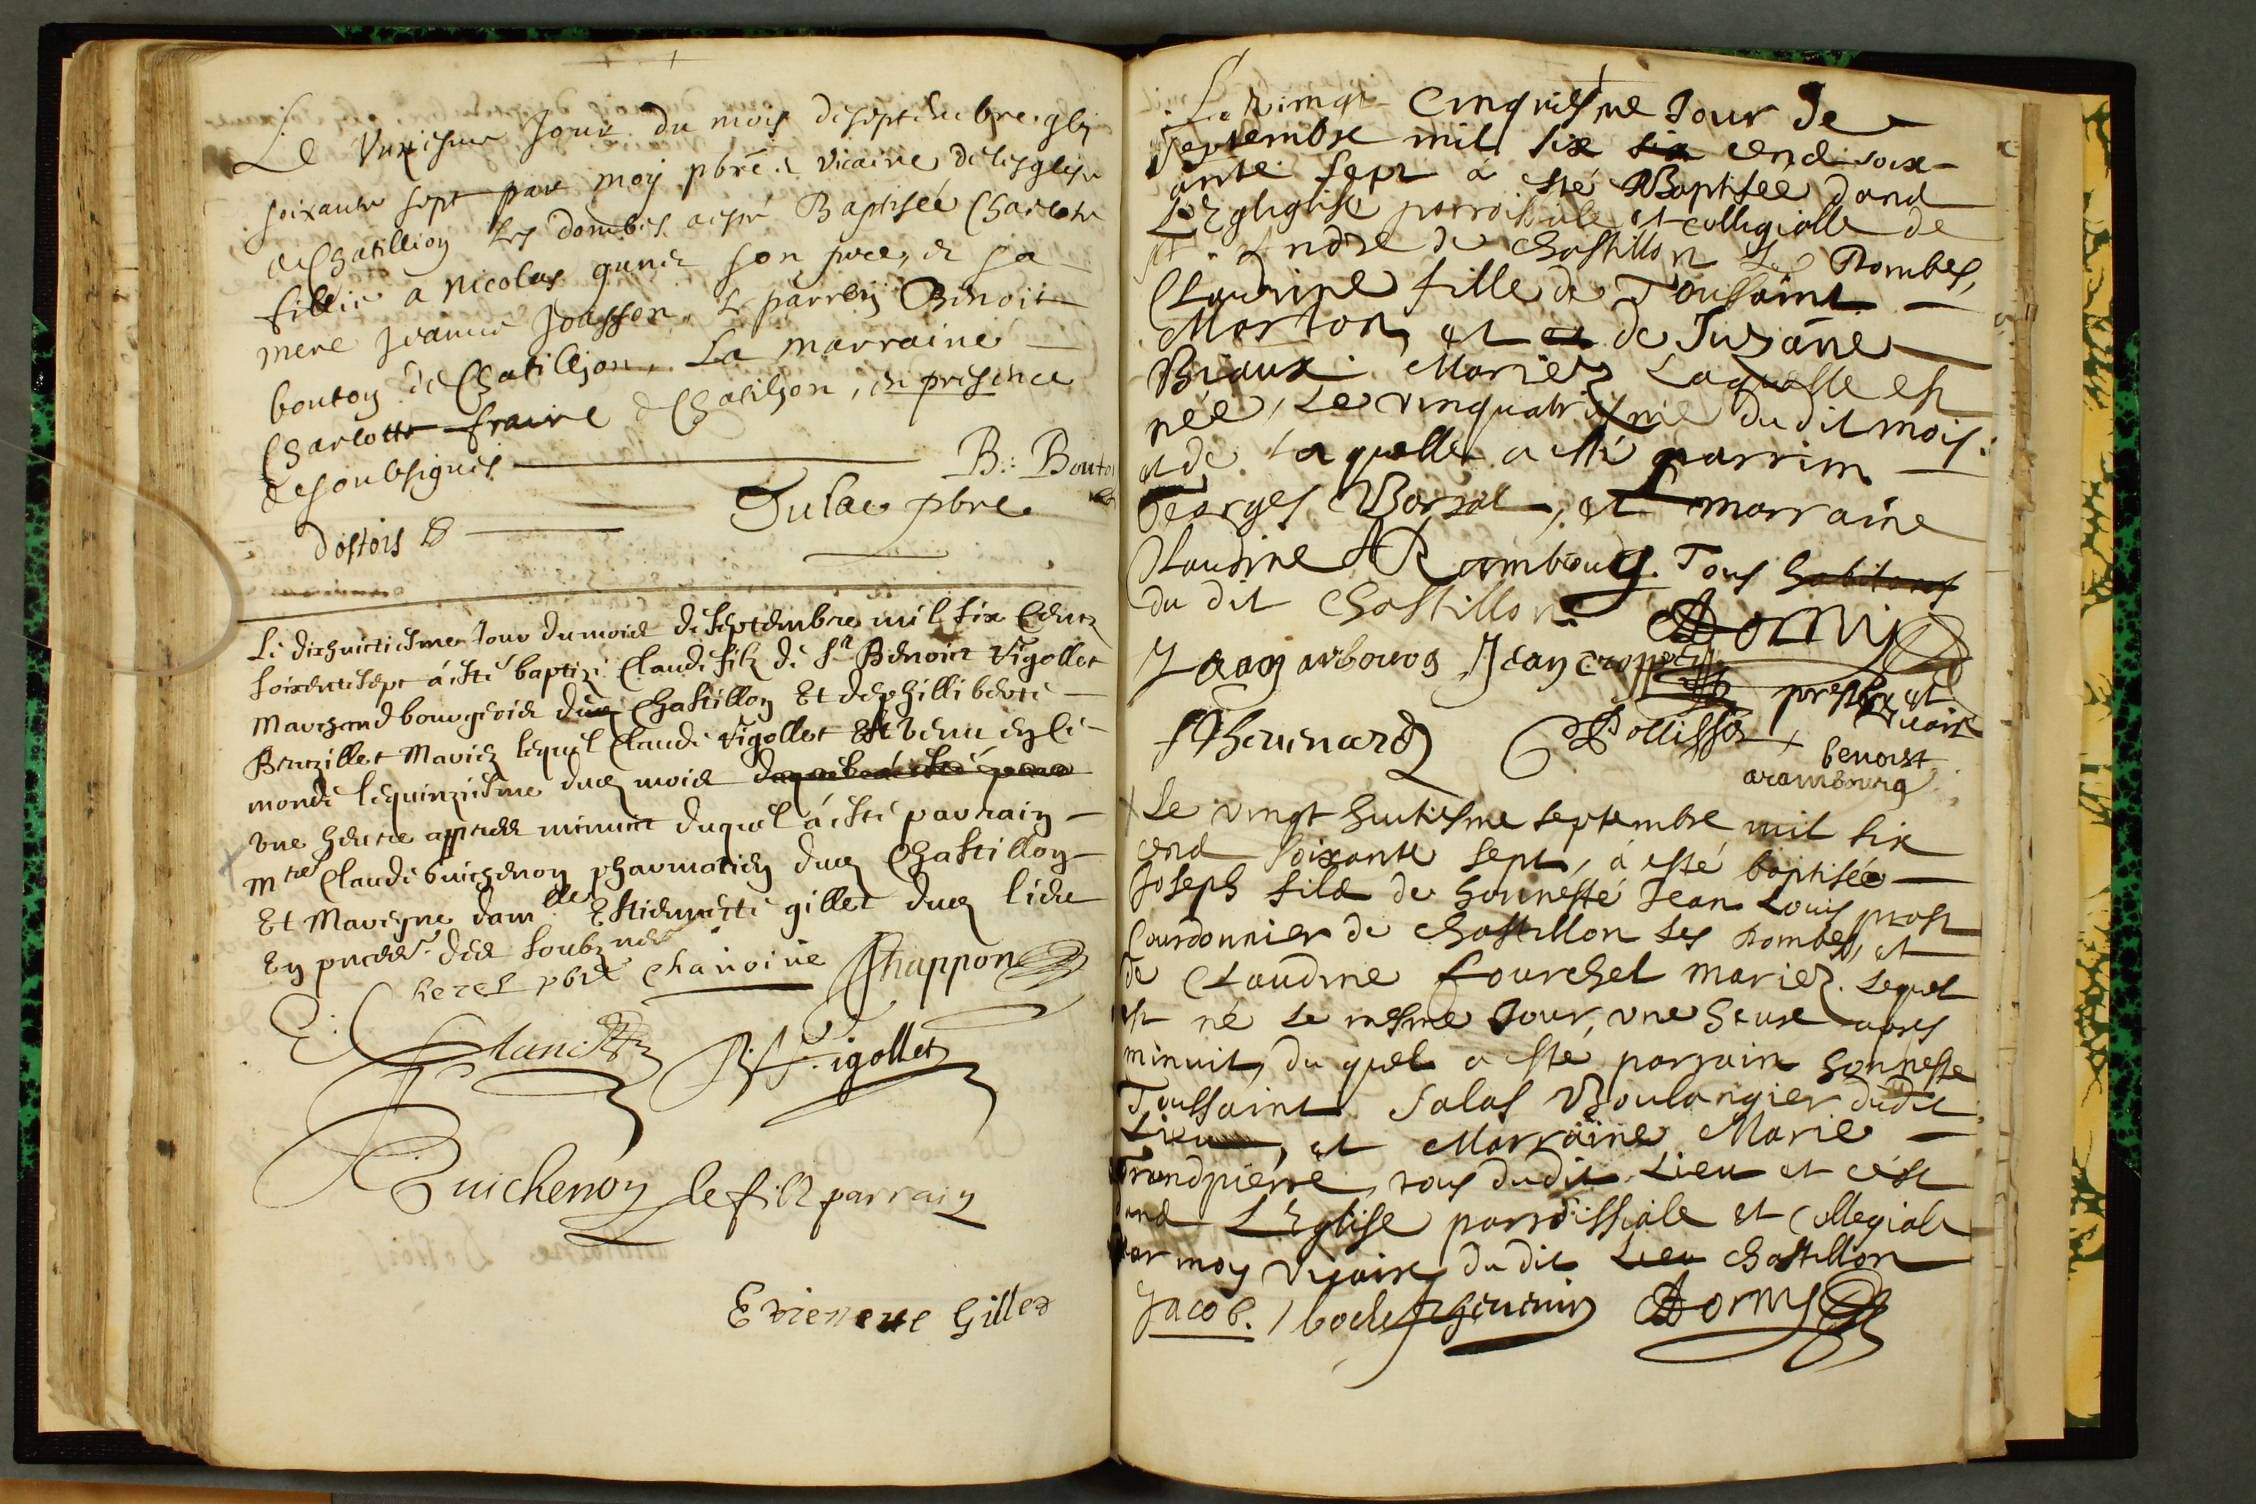 Le Unziesme Jour du mois de septembre
soixante sept par moy pbre & vicaire de lesglise
de Chatillion les dombes a esté Baptisée Charlote
fillie a nicolas son pere, & sa
mere Jeanne Jousson. le parrein Benoit
bouton de Chatillion. La marraine
Charlotte fraire de Chatilion, en presence
desoubsignés
B. Bouton
Dulac pbre
Le dixhuictiesme Jour du mois de septembre mil six Centz
soixente sept á esté baptizé Claude filz de Sr Benoict Vigollet
Marchand bourgeois dud Chastillon Et de philliberte
Bruzillet Mariez lequel Claude Vigollet Est venu en le
monde le quinziesme dud mois
vne heure appres minuict duquel á esté parrain
Mtre Claude Guichenon pharmatien dud Chastillon
Et Mareyne damlle Estiennette gillet dud lieu
En presce des soubznes
pbre chanoine Chappon
Vigollet
Guichenon le filz parrain
Etienete Gillet
Le Vingt Cinquiesme Jour de
septembre mil six six cend soix
ante sept a esté Baptisée dand
L'Eglglise parroissiale et collegialle de
st. Andre de Chastillon Les Dombes,
Claudine fille de Toussaint
Morton, et de Suzane
Briaux. Mariez Laquelle est
née, Le vinquatriesme du dit mois.
et de Laquelle a esté parrim
Georges Borsat, et marraine
Claudine Rambourg. Tous habitans
du dit Chastillon. Dorny
arbourg Jean
prestre et
vicaire
Theuenard
benoist
arambourg
Le vingt huitiesme septembre mil six
cend soixante sept, á esté baptisée
Joseph filz de honnesté Jean Louis prost
Courdonnier de Chastillon Les Dombes, et
de Claudine fourchet mariez. Lequel
est né Le mesme Jour, vne heure apres
minuit, du quel a esté parrain honneste
Toussaint Salas Boulangier dudit
Lieu, et Marraine Marie
Grandpierre, tous dudit Lieu et c'est
dand L'Eglise parroissiale et Collegiale
par moy Vicaire du dit Lieu Chastillon
Jacob. Dorny